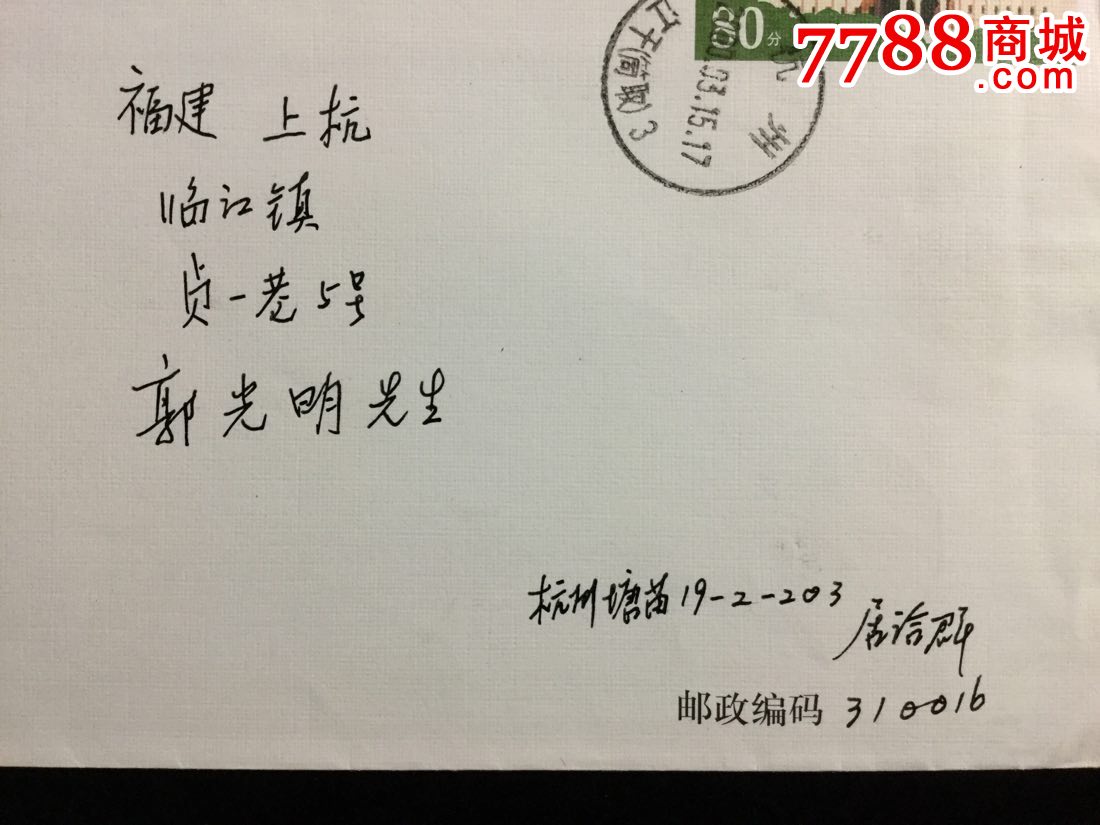 80分
7788商城
.com
杭州
2001.03.15.17
江干(筒取)3
福建 上杭
临江镇
贞一巷5号
郭光明先生
杭州塘苗19-2-203
居洽群
邮政编码 310016